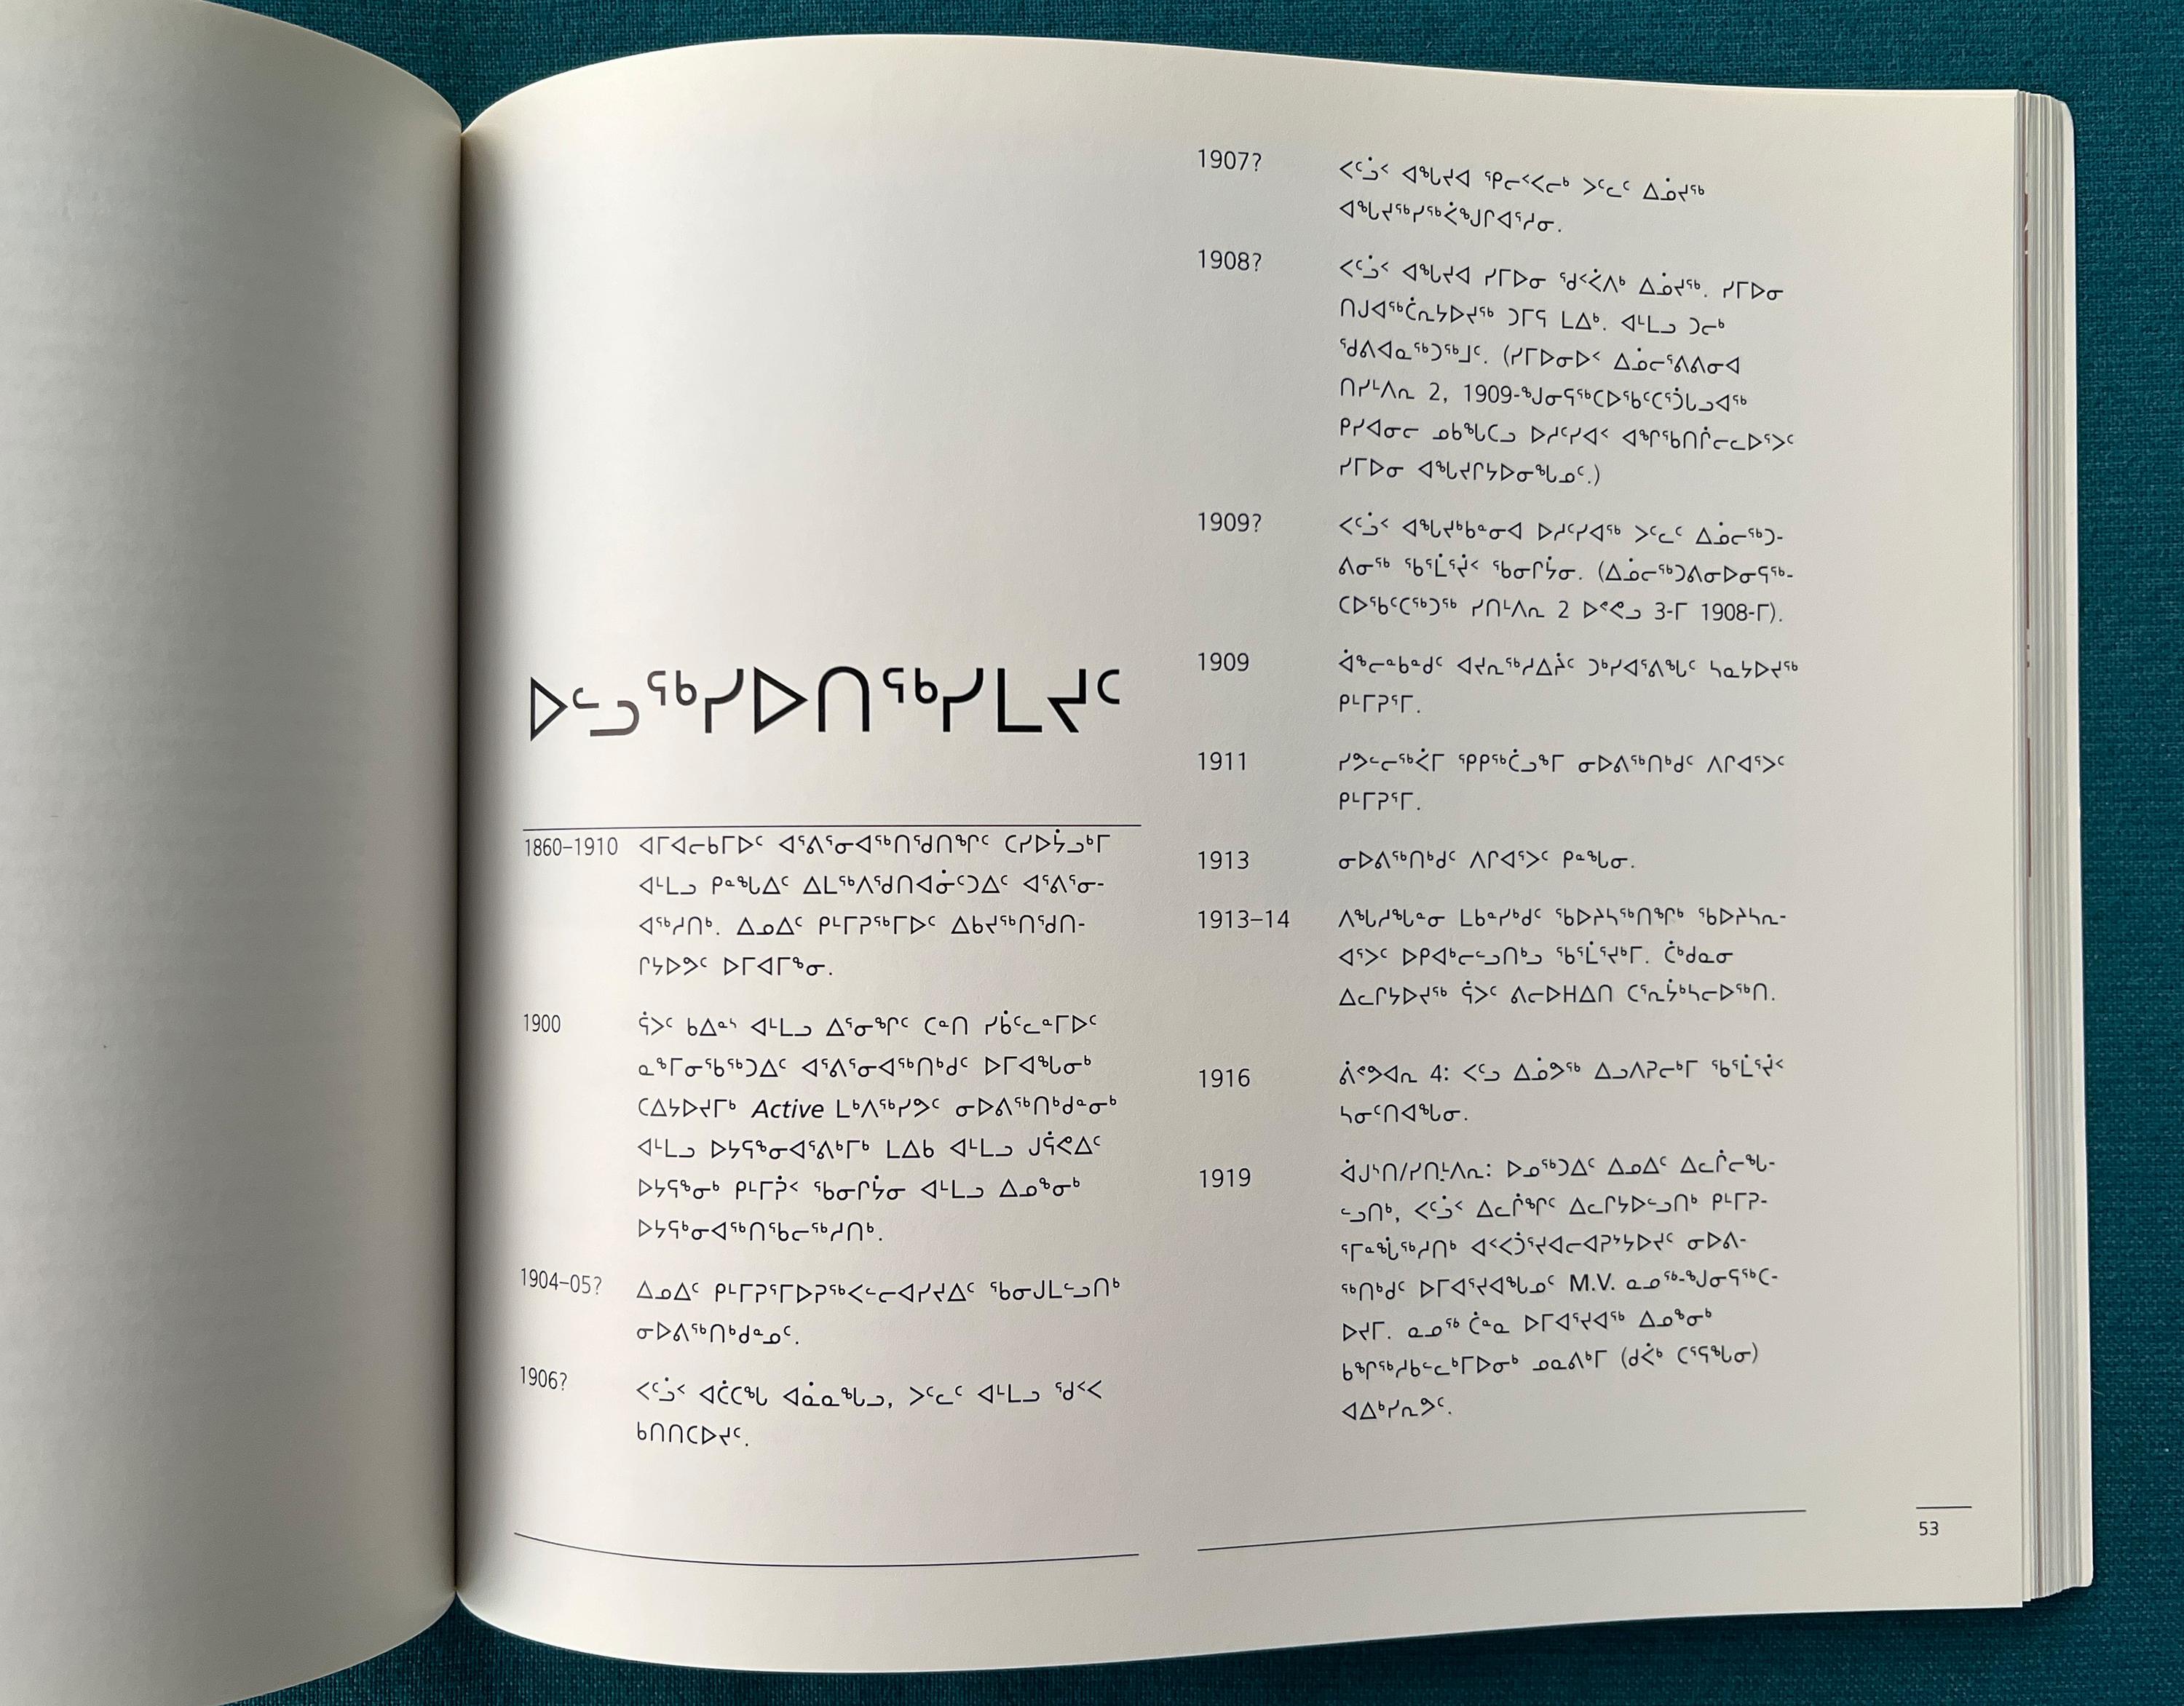 ᐅᓪᓗᖅᓯᐅᑎᖅᓯᒪᔪᑦ
1860–1910 ᐊᒥᐊᓕᑲᒥᐅᑦ ᐊᕐᕕᕐᓂᐊᖅᑎᖁᑎᖏᑦ ᑕᓯᐅᔮᓗᒃᒥ
ᐊᒻᒪᓗ ᑭᓐᖓᐃᑦ ᐃᒪᖅᐱᖁᑎᐊᓃᑦᑐᐃᑦ ᐊᕐᕕᕐᓂ-
ᐊᖅᓱᑎᒃ. ᐃᓄᐃᑦ ᑭᒻᒥᕈᖅᒥᐅᑦ ᐃᑲᔪᖅᑎᖁᑎ-
ᒋᔭᐅᕗᑦ ᐅᒥᐊᒥᖕᓂ.
1900 ᕌᐳᑦ ᑲᐃᓐᔅ ᐊᒻᒪᓗ ᐃᕐᓂᖏᑦ ᑕᓐᑎ ᓯᑳᑦᓚᓐᒥᐅᑦ
ᓇᖕᒥᓂᖃᖅᑐᐃᑦ ᐊᕐᕕᕐᓂᐊᖅᑎᒃᑯᑦ ᐅᒥᐊᖓᓂᒃ
ᑕᐃᔭᐅᔪᒥᒃ Active ᒪᒃᐱᖅᓯᕗᑦ ᓂᐅᕕᖅᑎᒃᑯᓐᓂᒃ
ᐊᒻᒪᓗ ᐅᔭᕋᖕᓂᐊᕐᕕᒃᒥᒃ ᒪᐃᑲ ᐊᒻᒪᓗ ᒍᕌᕙᐃᑦ
ᐅᔭᕋᖕᓂᒃ ᑭᒻᒥᕉᑉ ᖃᓂᒋᔮᓂ ᐊᒻᒪᓗ ᐃᓄᖕᓂᒃ
ᐅᔭᕋᒃᓂᐊᖅᑎᖃᓕᖅᓱᑎᒃ.
1904–05? ᐃᓄᐃᑦ ᑭᒻᒥᕈᕐᒥᐅᕈᖅᐸᓪᓕᐊᓯᔪᐃᑦ ᖃᓂᒍᒪᓪᓗᑎᒃ
ᓂᐅᕕᖅᑎᒃᑯᓐᓄᑦ.
1906? ᐸᑦᓘᑉ ᐊᑖᑕᖓ ᐊᓈᓇᖓᓗ, ᐳᑦᓚᑦ ᐊᒻᒪᓗ ᖁᑉᐸ
ᑲᑎᑎᑕᐅᔪᑦ.
1907? ᐸᑦᓘᑉ ᐊᖓᔪᐊ ᕿᓕᑉᐸᓕᒃ ᐳᑦᓚᑦ ᐃᓅᔪᖅ
ᐊᖓᔪᖅᓯᖅᐹᖑᒋᐊᕐᓱᓂ.
1908? ᐸᑦᓘᑉ ᐊᖓᔪᐊ ᓯᒥᐅᓂ ᖁᑉᐹᐱᒃ ᐃᓅᔪᖅ. ᓯᒥᐅᓂ
ᑎᒍᐊᖅᑖᕆᔭᐅᔪᖅ ᑐᒥᕋ ᒪᐃᒃ. ᐊᒻᒪᓗ ᑐᓕᒃ
ᖁᕕᐊᓇᖅᑐᖅᒧᑦ. (ᓯᒥᐅᓂᐅᑉ ᐃᓅᓕᕐᕕᕕᓂᐊ
ᑎᓯᒻᐱᕆ 2, 1909-ᖑᓂᕋᖅᑕᐅᖃᑦᑕᕐᑑᒐᓗᐊᖅ
ᑭᓯᐊᓂᓕ ᓄᑲᖓᑕᓗ ᐅᓱᑦᓯᐊᑉ ᐊᖏᖃᑎᒌᓕᓚᐅᕐᐳᑦ
ᓯᒥᐅᓂ ᐊᖓᔪᒋᔭᐅᓂᖓᓄᑦ.)
1909? ᐸᑦᓘᑉ ᐊᖓᔪᒃᑲᓐᓂᐊ ᐅᓱᑦᓯᐊᖅ ᐳᑦᓚᑦ ᐃᓅᓕᖅᑐ-
ᕕᓂᖅ ᖃᕐᒫᕐᔫᑉ ᖃᓂᒋᔮᓂ. (ᐃᓅᓕᖅᑐᕕᓂᐅᓂᕋᖅ-
ᑕᐅᖃᑦᑕᖅᑐᖅ ᓯᑎᒻᐱᕆ 2 ᐅᕝᕙᓗ 3-ᒥ 1908-ᒥ).
1909 ᐋᖕᓕᓐᑲᓐᑯᑦ ᐊᔪᕆᖅᓱᐃᔩᑦ ᑐᒃᓯᐊᕐᕕᖓᑦ ᓴᓇᔭᐅᔪᖅ
ᑭᒻᒥᕈᕐᒥ.
1911 ᓯᕗᓪᓕᖅᐹᒥ ᕿᑭᖅᑖᓗᖕᒥ ᓂᐅᕕᖅᑎᒃᑯᑦ ᐱᒋᐊᕐᐳᑦ
ᑭᒻᒥᕈᕐᒥ.
1913 ᓂᐅᕕᖅᑎᒃᑯᑦ ᐱᒋᐊᕐᐳᑦ ᑭᓐᖓᓂ.
1913–14 ᐱᖓᓱᖓᓐᓂ ᒪᑲᓐᓯᒃᑯᑦ ᖃᐅᔨᓴᖅᑎᖏᒃ ᖃᐅᔨᓴᕆ-
ᐊᕐᐳᑦ ᐅᑭᐊᒃᓕᓪᓗᑎᒃᓗ ᖃᕐᒫᕐᔪᒃᒥ. ᑖᒃᑯᓇᓂ
ᐃᓚᒋᔭᐅᔪᖅ ᕌᐳᑦ ᕕᓕᐅᕼᐃᑎ ᑕᕐᕆᔮᒃᓴᓕᐅᖅᑎ.
1916 ᕖᕝᕗᐊᕆ 4: ᐸᑦᓗ ᐃᓅᕗᖅ ᐃᓗᐱᕈᓕᒃᒥ ᖃᕐᒫᕐᔫᑉ
ᓴᓂᑦᑎᐊᖓᓂ.
1919 ᐋᒍᔅᑎ/ᓯᑎᒻᐱᕆ: ᐅᓄᖅᑐᐃᑦ ᐃᓄᐃᑦ ᐃᓚᒌᓕᖓ-
ᓪᓗᑎᒃ, ᐸᑦᓘᑉ ᐃᓚᒌᖏᑦ ᐃᓚᒋᔭᐅᓪᓗᑎᒃ ᑭᒻᒥᕈ-
ᕐᒥᓐᖔᖅᓱᑎᒃ ᐊᑉᐸᑑᕐᔪᐊᓕᐊᕈᔾᔭᐅᔪᑦ ᓂᐅᕕ-
ᖅᑎᒃᑯᑦ ᐅᒥᐊᕐᔪᐊᖓᓄᑦ M.V. ᓇᓄᖅ-ᖑᓂᕋᖅᑕ-
ᐅᔪᒥ. ᓇᓄᖅ ᑖᓐᓇ ᐅᒥᐊᕐᔪᐊᖅ ᐃᓄᖕᓂᒃ
ᑲᖏᖅᓱᑲᓪᓚᒃᒥᐅᓂᒃ ᓄᓇᕕᒃᒥ (ᑯᐹᒃ ᑕᕐᕋᖓᓂ)
ᐊᐃᒃᓯᕆᕗᑦ.
53